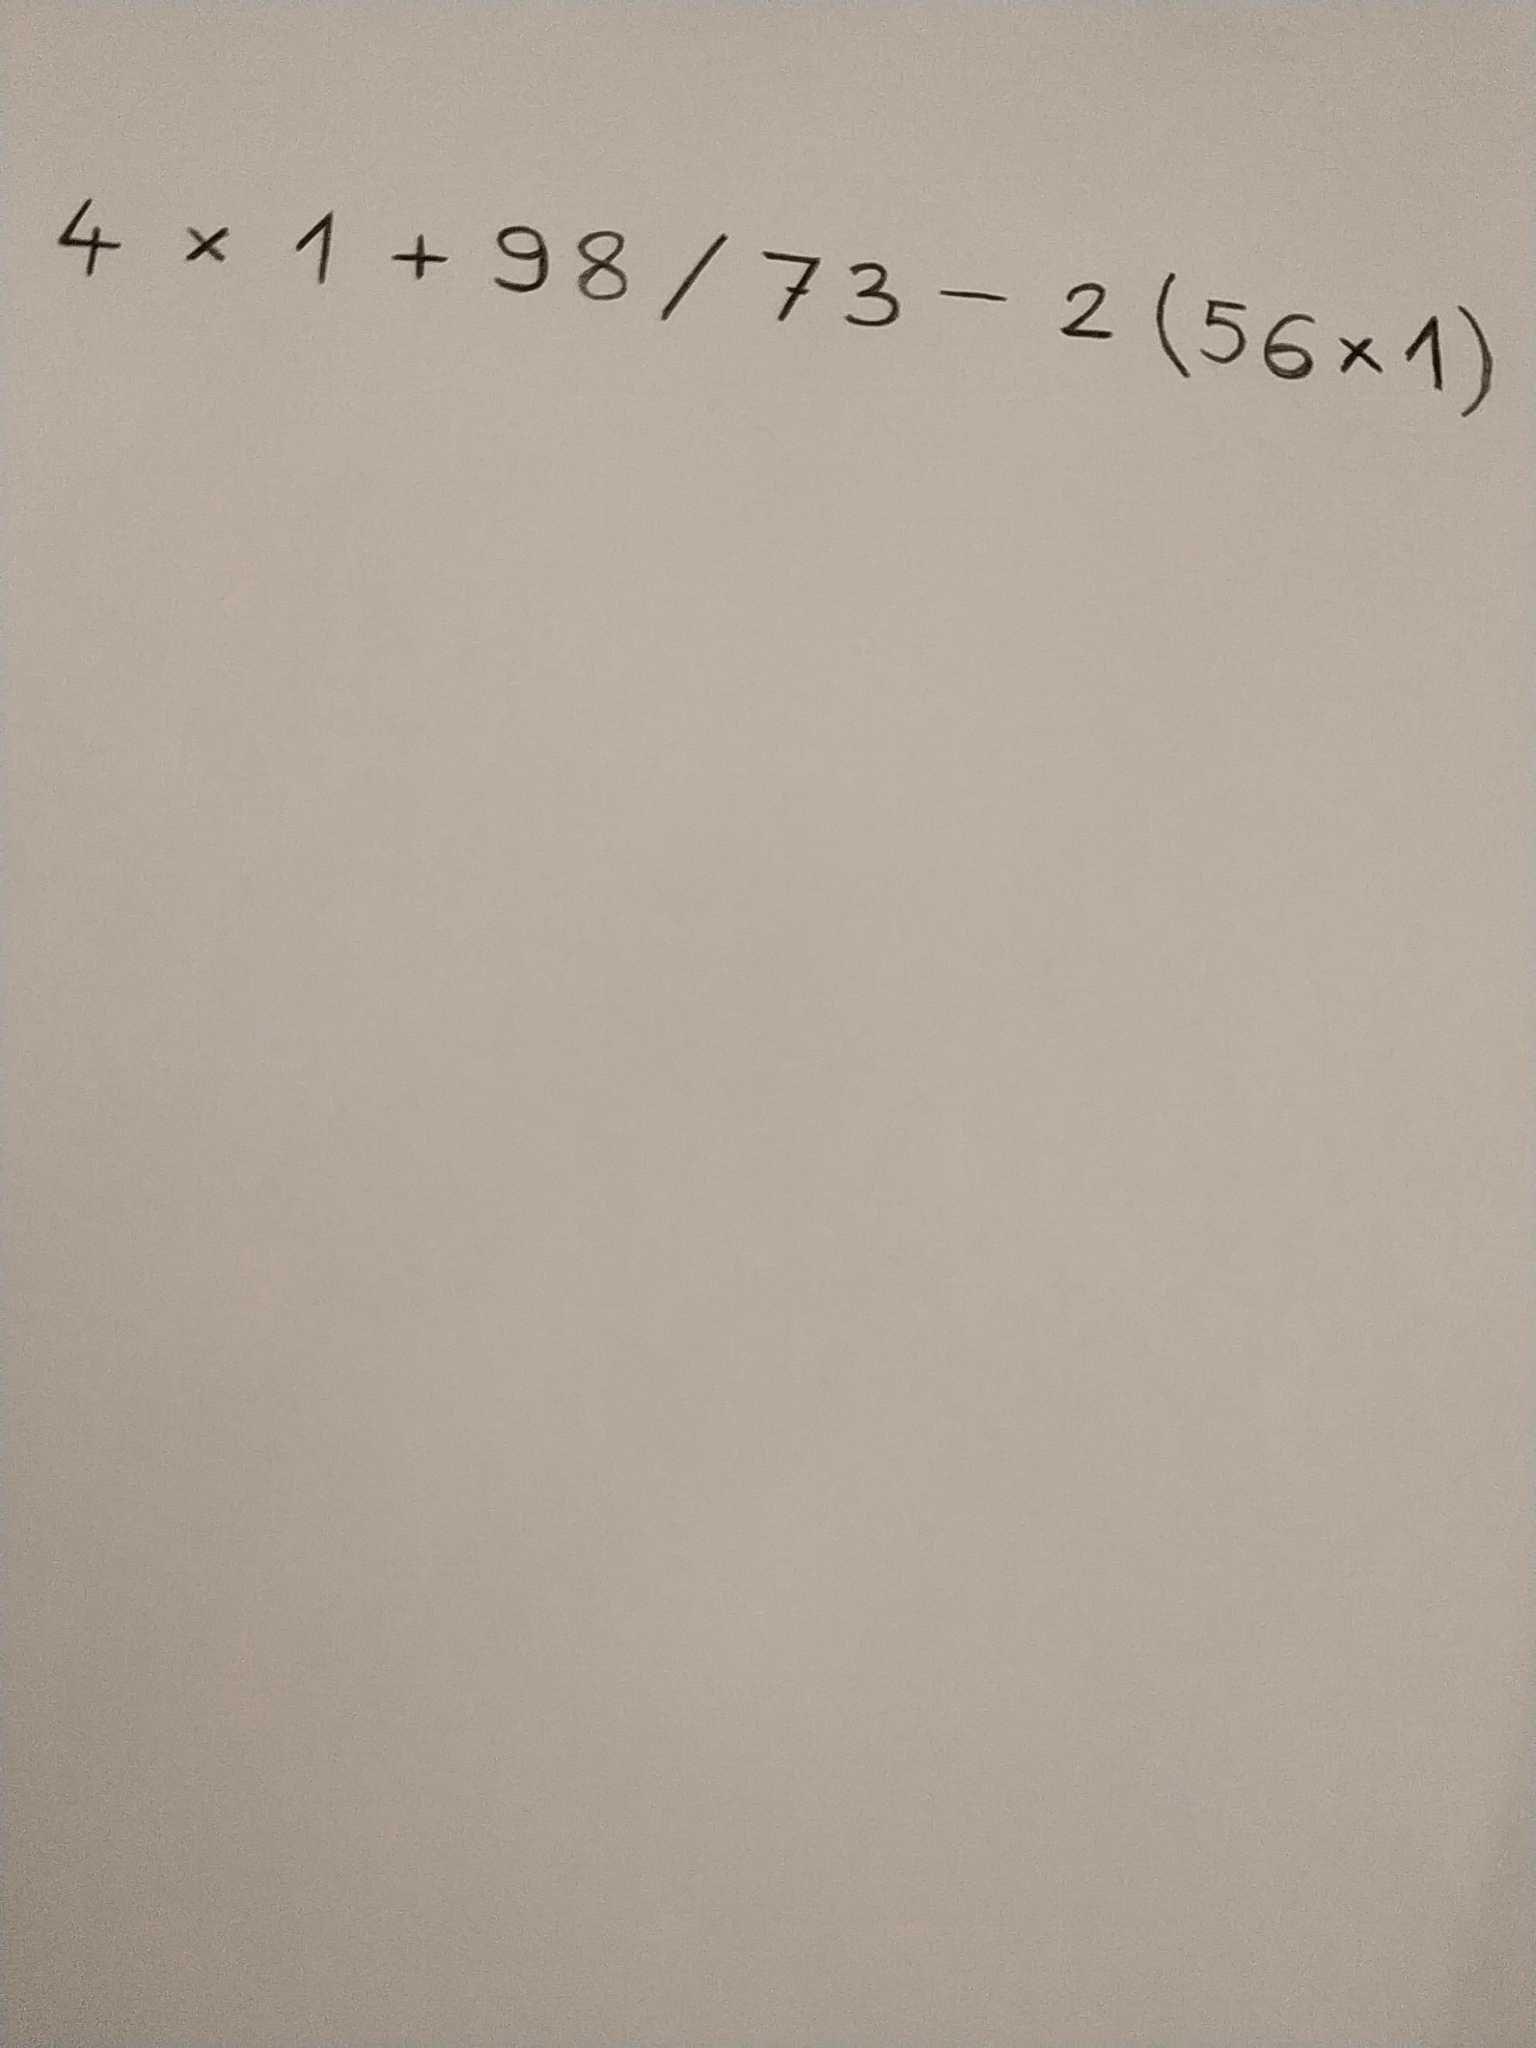 4 × 1 + 98 / 73 - 2 (56 × 1)